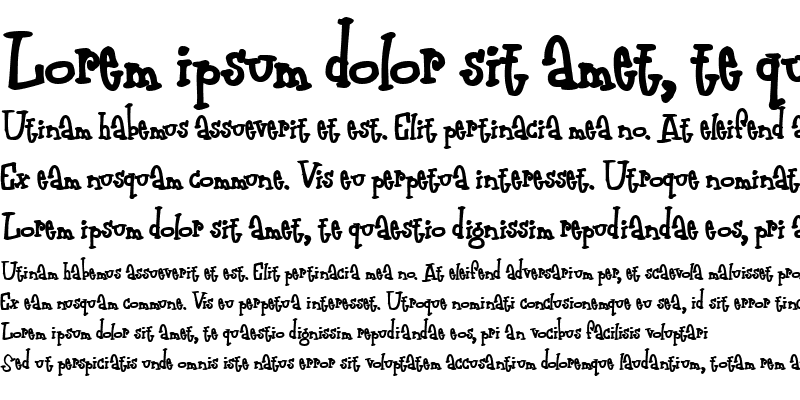 Lorem ipsum dolor sit amet, te qu
Utinam habemus assueverit et est. Elit pertinacia mea no. At eleifend a
Ex eam nusquam commune. Vis eu perpetua interesset. Utroque nominat
Lorem ipsum dolor sit amet, te quaestio dignissim repudiandae eos, pri a
Utinam habemus assueverit et est. Elit pertinacia mea no. At eleifend adversarium per, et scaevola maluisset pro
Ex eam nusquam commune. Vis eu perpetua interesset. Utroque nominati conclusionemque eu sea, id sit error tinc
Lorem ipsum dolor sit amet, te quaestio dignissim repudiandae eos, pri an vocibus facilisis voluptari
Sed ut perspiciatis unde omnis iste natus error sit voluptatem accusantium doloremque laudantium, totam rem a